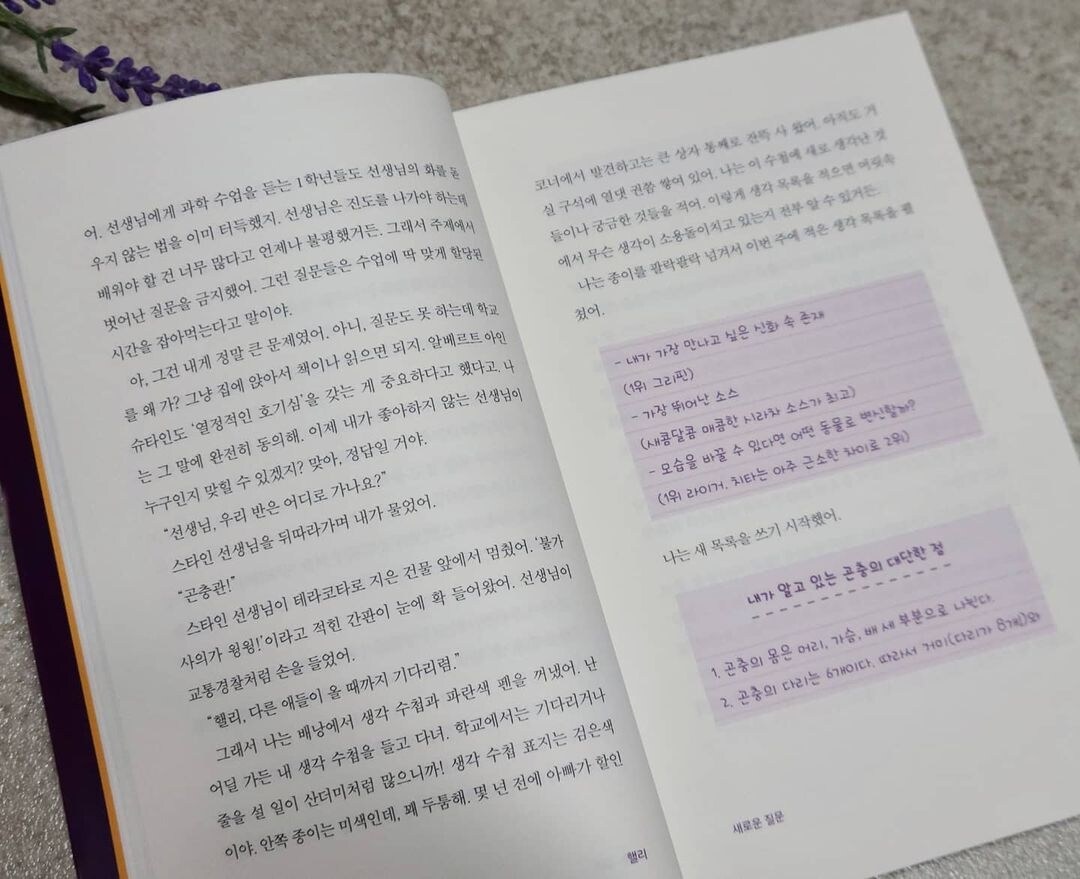 어. 선생님에게 과학 수업을 듣는 1학년들도 선생님의 화를 돋
우지 않는 법을 이미 터득했지. 선생님은 진도를 나가야 하는데
배워야 할 건 너무 많다고 언제나 불평했거든. 그래서 주제에서
벗어난 질문을 금지했어. 그런 질문들은 수업에 딱 맞게 할당된
시간을 잡아먹는다고 말이야.
아, 그건 내게 정말 큰 문제였어. 아니, 질문도 못 하는데 학교
를 왜 가? 그냥 집에 앉아서 책이나 읽으면 되지. 알베르트 아인
슈타인도 ‘열정적인 호기심’을 갖는 게 중요하다고 했다고. 나
는 그 말에 완전히 동의해. 이제 내가 좋아하지 않는 선생님이
누구인지 맞힐 수 있겠지? 맞아, 정답일 거야.
“선생님, 우리 반은 어디로 가나요?”
스타인 선생님을 뒤따라가며 내가 물었어.
“곤충관!”
스타인 선생님이 테라코타로 지은 건물 앞에서 멈췄어. ‘불가
사의가 윙윙!’이라고 적힌 간판이 눈에 확 들어왔어. 선생님이
교통경찰처럼 손을 들었어.
“핼리, 다른 애들이 올 때까지 기다리렴.”
그래서 나는 배낭에서 생각 수첩과 파란색 펜을 꺼냈어. 난
어딜 가든 내 생각 수첩을 들고 다녀. 학교에서는 기다리거나
줄을 설 일이 산더미처럼 많으니까! 생각 수첩 표지는 검은색
이야. 안쪽 종이는 미색인데, 꽤 두툼해. 몇 년 전에 아빠가 할인
핼리
코너에서 발견하고는 큰 상자 통째로 잔뜩 사 왔어. 아직도 거
실 구석에 열댓 권쯤 쌓여 있어. 나는 이 수첩에 새로 생각난 것
들이나 궁금한 것들을 적어. 이렇게 생각 목록을 적으면 머릿속
에서 무슨 생각이 소용돌이치고 있는지 전부 알 수 있거든.
나는 종이를 팔락팔락 넘겨서 이번 주에 적은 생각 목록을 펼
쳤어.
- 내가 가장 만나고 싶은 신화 속 존재
(1위 그리핀)
- 가장 뛰어난 소스
(새콤달콤 매콤한 시라차 소스가 최고)
- 모습을 바꿀 수 있다면 어떤 동물로 변신할까?
(1위 라이거. 치타는 아주 근소한 차이로 2위)
나는 새 목록을 쓰기 시작했어.
내가 알고 있는 곤충의 대단한 점
1. 곤충의 몸은 머리, 가슴, 배 세 부분으로 나뉜다.
2. 곤충의 다리는 6개이다. 따라서 거미(다리가 8개)와
새로운 질문